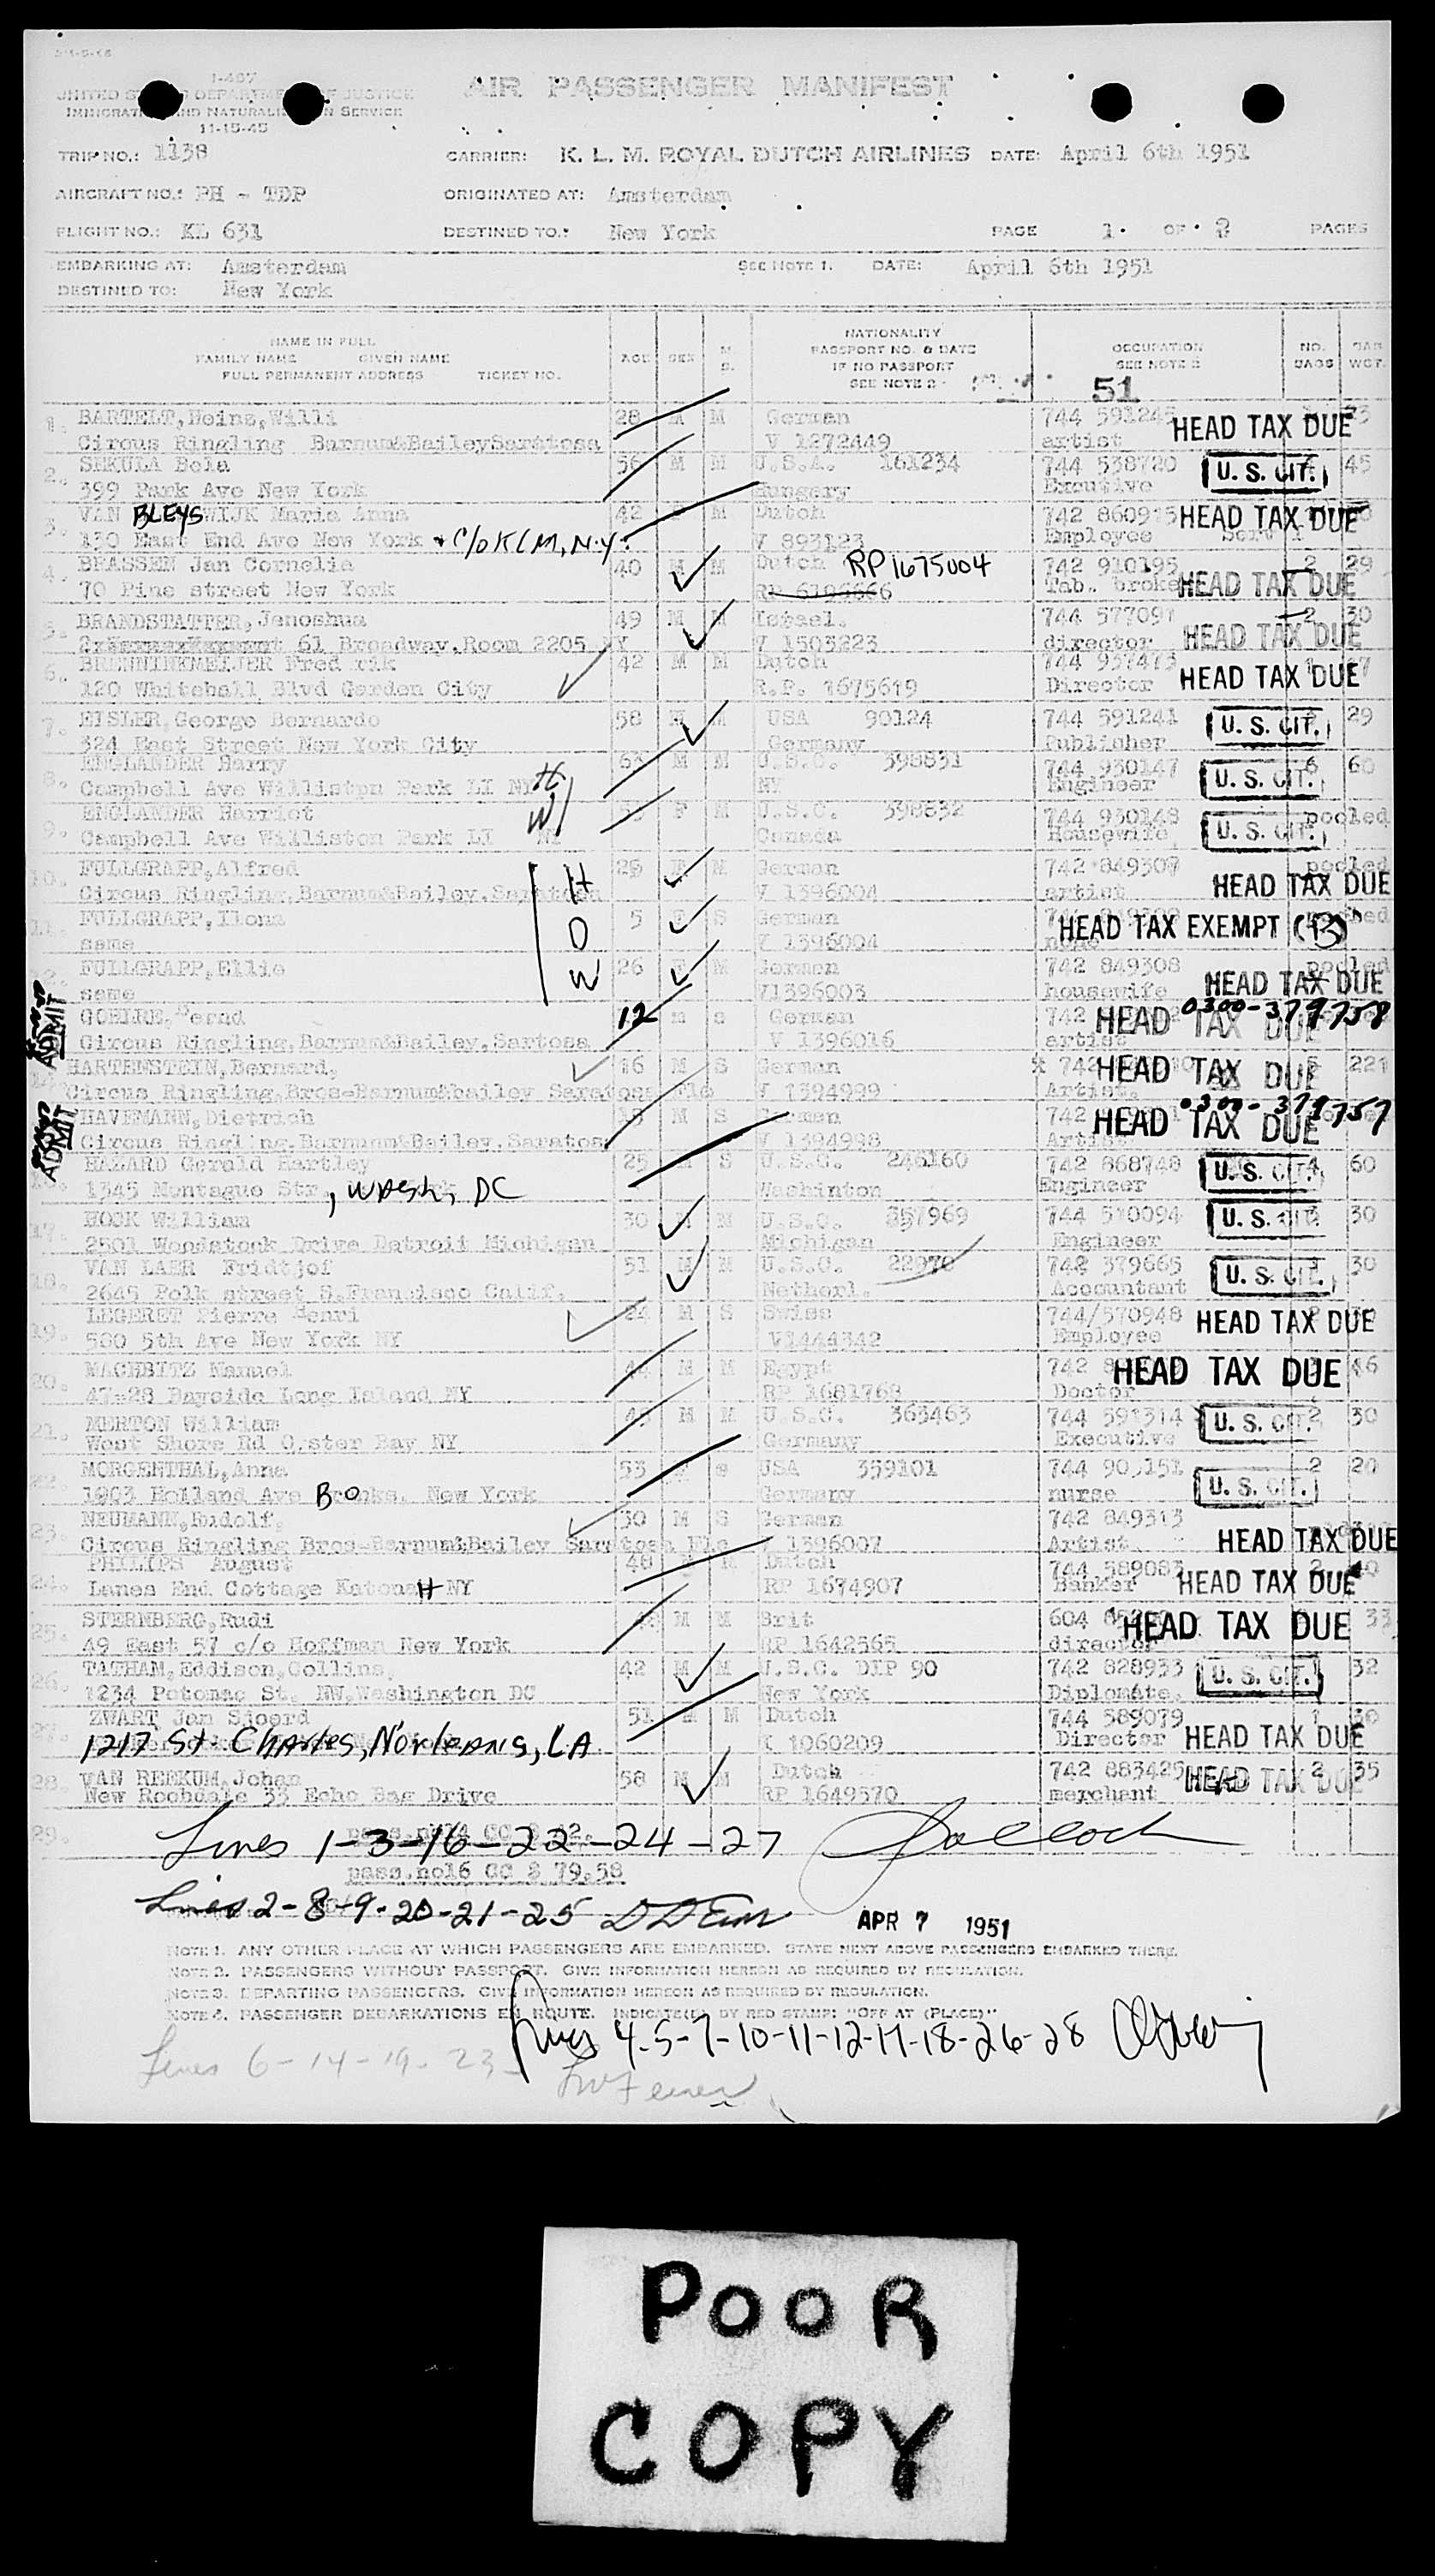 I-467
AIR PASSENGER MANIFEST
UNITED STATES DEPARTMENT OF JUSTICE
IMMIGRATION AND NATURALIZATION SERVICE
11-15-45
TRIP NO.: 1138 CARRIER: K. L. M. ROYAL DUTCH AIRLINES DATE: April 6th 1951
AIRCRAFT NO.: PH - TDP ORIGINATED AT: Amsterdam
FLIGHT NO.: KL 631 DESTINED TO.: New York PAGE 1. OF PAGES
EMBARKING AT: Amsterdam SEE NOTE 1. DATE: April 6th 1951
DESTINED TO: New York
NAME IN FULL
FAMILY NAME GIVEN NAME
FULL PERMANENT ADDRESS TICKET NO.
AGE SEX M S.
NATIONALITY
PASSPORT NO. & DATE
IF NO PASSPORT
SEE NOTE 2
OCCUPATION
SEE NOTE 3
NO. BAGS BAG WGT.
51
1. BARTELT, Heinz, Willi 28 M M German 744 591245 HEAD TAX DUE
Circus Ringling Barnum&BaileySaratosa V 1272449 artist
2. SEKULA Bela 56 M M U.S.A. 161234 744 538720 U. S. CIT. 45
399 Park Ave New York Hungery Excutive
3. VAN BLEYSWIJK Marie Anna 42 F M Dutch 742 860915 HEAD TAX DUE
130 East End Ave New York c/o KLM, N.Y. V 893123 Employee
4. BRASSEN Jan Cornelis 40 M M Dutch RP 1675004 742 910195 2 29
70 Pine street New York Tab. broker HEAD TAX DUE
5. BRANDSTATTER, Jenoshua 49 M M Israel. 744 577091 2 30
61 Broadway, Room 2205 NY V 1503223 director HEAD TAX DUE
6. BRENNINKMEIJER Fred rik 42 M M Dutch 744 957473
120 Whitehall Blvd Garden City R.P. 1675619 Director HEAD TAX DUE
7. EISLER, George Bernardo 58 M M USA 90124 744 591241 U. S. CIT. 29
324 East Street New York City Germany Publisher
8. ENGLANDER Harry 63 M M U.S.C. 398831 744 930147 6 60
Campbell Ave Williston Park LI NY H NY Engineer U. S. CIT.
9. ENGLANDER Harriet F M U.S.C. 398832 744 930148 pooled
Campbell Ave Williston Park LI W Canada Housewife U. S. CIT.
10. FULLGRAPP, Alfred H 26 M German 742 849307 pooled
Circus Ringling, Barnum&Bailey, Saratosa V 1396004 artist HEAD TAX DUE
11. FULLGRAPP, Ilona D 5 F S German HEAD TAX EXEMPT (B)
same V 1396004 none
12. FULLGRAPP, Ellie W 26 F M German 742 849308 pooled
same V1396003 housewife HEAD TAX DUE
ADMIT
GOELKE, Bernd 12 m s German 742 0300-379758
Circus Ringling, Barnum&Bailey, Sartosa V 1396016 artist HEAD TAX DUE
14. HARTENSTEIN, Bernard, 16 M S German 742 HEAD TAX DUE 221
Circus Ringling, Bros-Barnum&bailey Saratosa Flo V 1394999 Artist.
ADMIT
HAVEMANN, Dietrich M S German 742 0300-379757
Circus Ringling, Barnum&Bailey, Saratosa V 1394998 Artist HEAD TAX DUE
HAZARD Gerald Hartley 25 M S U.S.C. 246160 742 868748 U. S. CIT. 4 60
1345 Montague Str , Wash, DC Washinton Engineer
17. HOOK William 30 M M U.S.C. 357969 744 510094 U. S. CIT. 30
2501 Woodstock Drive Detroit Michigan Michigan Engineer
18. VAN LAER Fridtjof 51 M M U.S.C. 22970 742 379665 30
2645 Polk street S.Francisco Calif. Netherl. Accountant U. S. CIT.
19. LEGERET Pierre Henri 24 M S Swiss 744/570948 HEAD TAX DUE
500 5th Ave New York NY V1444342 Employee
20. MACHBITZ Manuel M M Egypt 742 HEAD TAX DUE 46
47-28 Bayside Long Island NY RP 1681768 Doctor
21. MERTON William M M U.S.C. 363463 744 591314 U. S. CIT. 2 30
West Shore Rd Oyster Bay NY Germany Executive
22. MORGENTHAL, Anna 53 s USA 359101 744 903151 2 20
1903 Holland Ave Bronks. New York Germany nurse U. S. CIT.
23. NEUMANN, Rudolf, 30 M S German 742 849313
Circus Ringling Bros-Barnum&Bailey Saratosa Flo V 1396007 Artist HEAD TAX DUE
24. PHILIPS August 48 M Dutch 744 589083 2
Lanes End Cottage KatonaH NY RP 1674907 Banker HEAD TAX DUE
25. STERNBERG, Rudi M M Brit 604 HEAD TAX DUE 33
49 East 57 c/o Hoffman New York RP 1642565 director
26. TATHAM, Eddison, Collins, 42 M M U.S.C. DIP 90 742 828933 U. S. CIT. 32
1234 Potomac St. NW. Washington DC New York Diplomate.
27. ZWART Jan Sjoerd 51 M M Dutch 744 589079 1 30
1217 St. Charles, N'orleans, LA K 1060209 Director HEAD TAX DUE
28. VAN REEKUM, Johan 58 M M Dutch 742 883425 2 35
New Rochdale 33 Echo Bag Drive RP 1649570 merchant HEAD TAX DUE
29. Lines 1-3-16-22-24-27
pass.no16 CC $ 79.58
Lines 2-8-9-20-21-25 APR 7 1951
NOTE 1. ANY OTHER PLACE AT WHICH PASSENGERS ARE EMBARKED. STATE NEXT ABOVE PASSENGERS EMBARKED THERE.
NOTE 2. PASSENGERS WITHOUT PASSPORT. GIVE INFORMATION HEREON AS REQUIRED BY REGULATION.
NOTE 3. DEPARTING PASSENGERS. GIVE INFORMATION HEREON AS REQUIRED BY REGULATION.
NOTE 4. PASSENGER DEBARKATIONS EN ROUTE. INDICATE(D) BY RED STAMP: "OFF AT (PLACE)"
Lines 4-5-7-10-11-12-17-18-26-28
Lines 6-14-19-23-
POOR
COPY